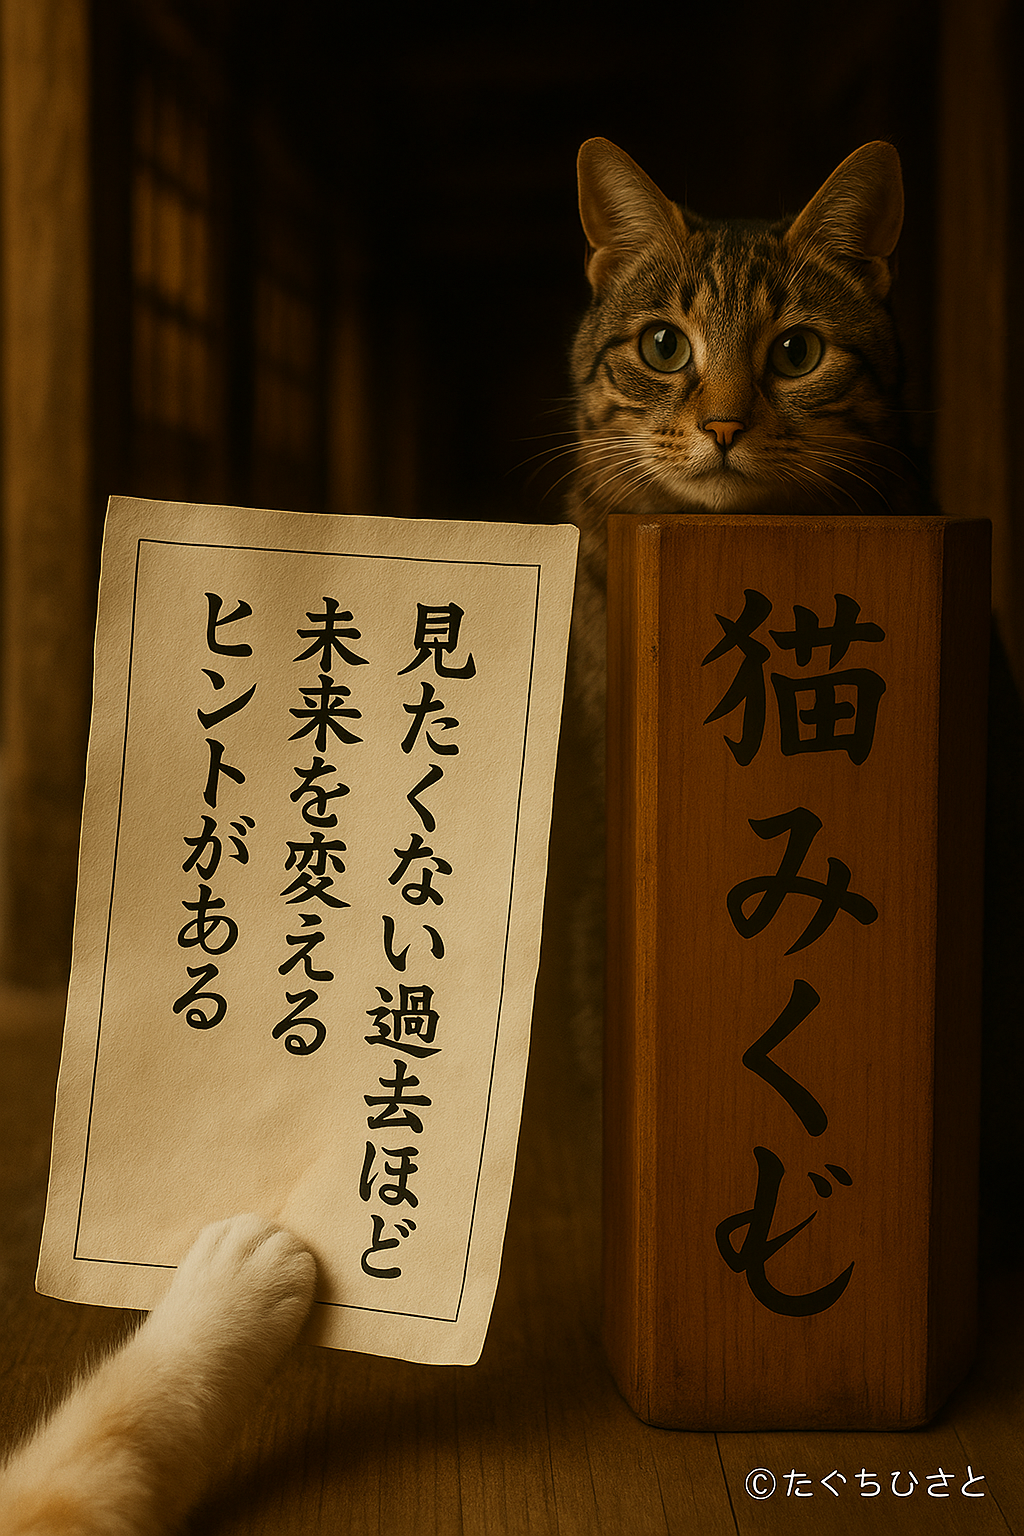 見たくない過去ほど
未来を変える
ヒントがある
猫みくじ
©たぐちひさと